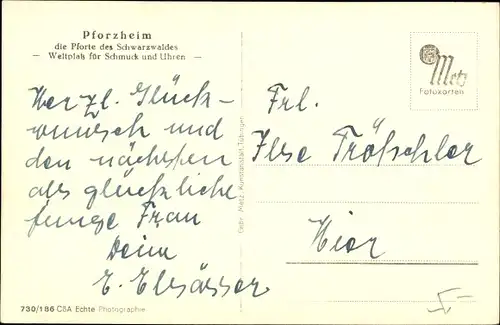 Pforzheim
die Pforte des Schwarzwaldes
— Weltplatz für Schmuck und Uhren —
Herzl. Glück-
wunsch und
den nächsten
als glückliche
junge Frau
Deine
E. Elsässer
730/186 CSA Echte Photographie
Gebr. Metz, Kunstanstalt, Tübingen
Metz
Fotokarten
Frl.
Ilse Tröschler
Hier